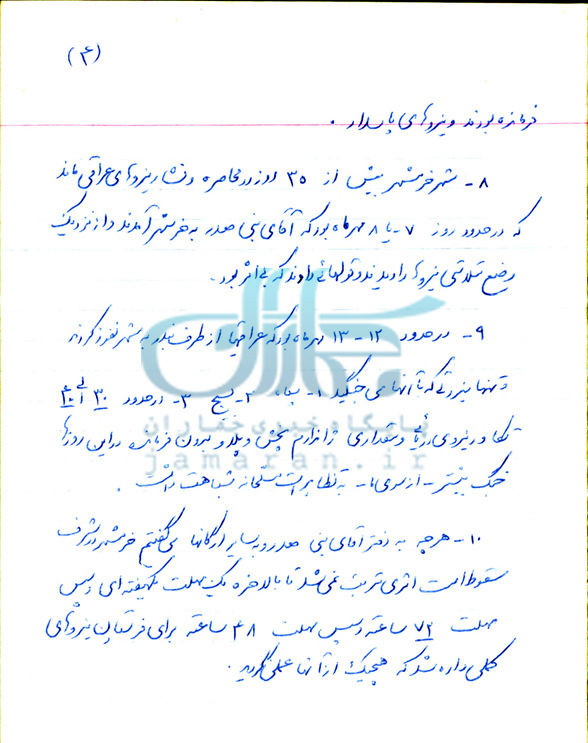 (۴)
فرمانده بودند و نیروهای پاسدار .
۸- شهر خرمشهر بیش از ۳۵ روز در محاصره و فشار نیروهای عراقی ماند
که در حدود روز ۷- یا ۸ مهرماه بود که آقای بنی صدر به خرمشهر آمدند و از نزدیک
وضع نیروها را دیدند و قولهائی دادند که بی اثر بود .
۹- در حدود ۱۲ - ۱۳ مهرماه بود که عراقیها از طرف بندر به شهر نفوذ کردند
و تنها نیروئی که با آنها می جنگید ۱- سپاه ۲- بسیج ۳- در حدود ۳۰ الی ۴۰
تکاور نیروی دریائی و مقداری ژاندارم پخش و پلا و بدون فرمانده در این روزها
جنگ بیشتر - از سوی ما - به تظاهرات مسلحانه شباهت داشت .
۱۰- هرچه به دفتر آقای بنی صدر و به سایر ارگانها می گفتیم خرمشهر در شرف
سقوط است اثری ترتیب نمی شد تا بالاخره یک مهلت یکهفته ای و سپس
مهلت ۷۲ ساعته و سپس مهلت ۴۸ ساعته برای فرستادن نیروهای
کمکی داده شد که هیچیک از آنها عملی نگردید .
پایگاه خبری جماران
jamaran.ir